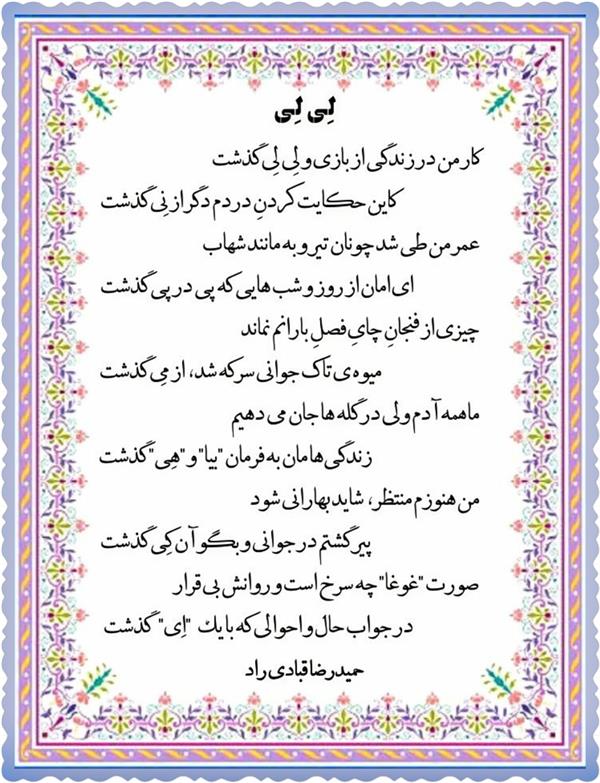 لِی لِی
کار من در زندگی از بازی و لِی لِی گذشت
کاین حکایت کردنِ دردم دگر از نِی گذشت
عمر من طی شد چونان تیر و به مانند شهاب
ای امان از روز و شب هایی که پی در پی گذشت
چیزی از فنجانِ چایِ فصلِ بارانم نماند
میوه ی تاک جوانی سرکه شد، از مِی گذشت
ما همه آدم ولی در گله ها جان می دهیم
زندگی هامان به فرمان "بیا" و "هِی" گذشت
من هنوزم منتظر، شاید بهارانی شود
پیر گشتم در جوانی و بگو آن کِی گذشت
صورت "غوغا" چه سرخ است و روانش بی قرار
در جواب حال و احوالی که با یك "اِی" گذشت
حمیدرضا قبادی راد